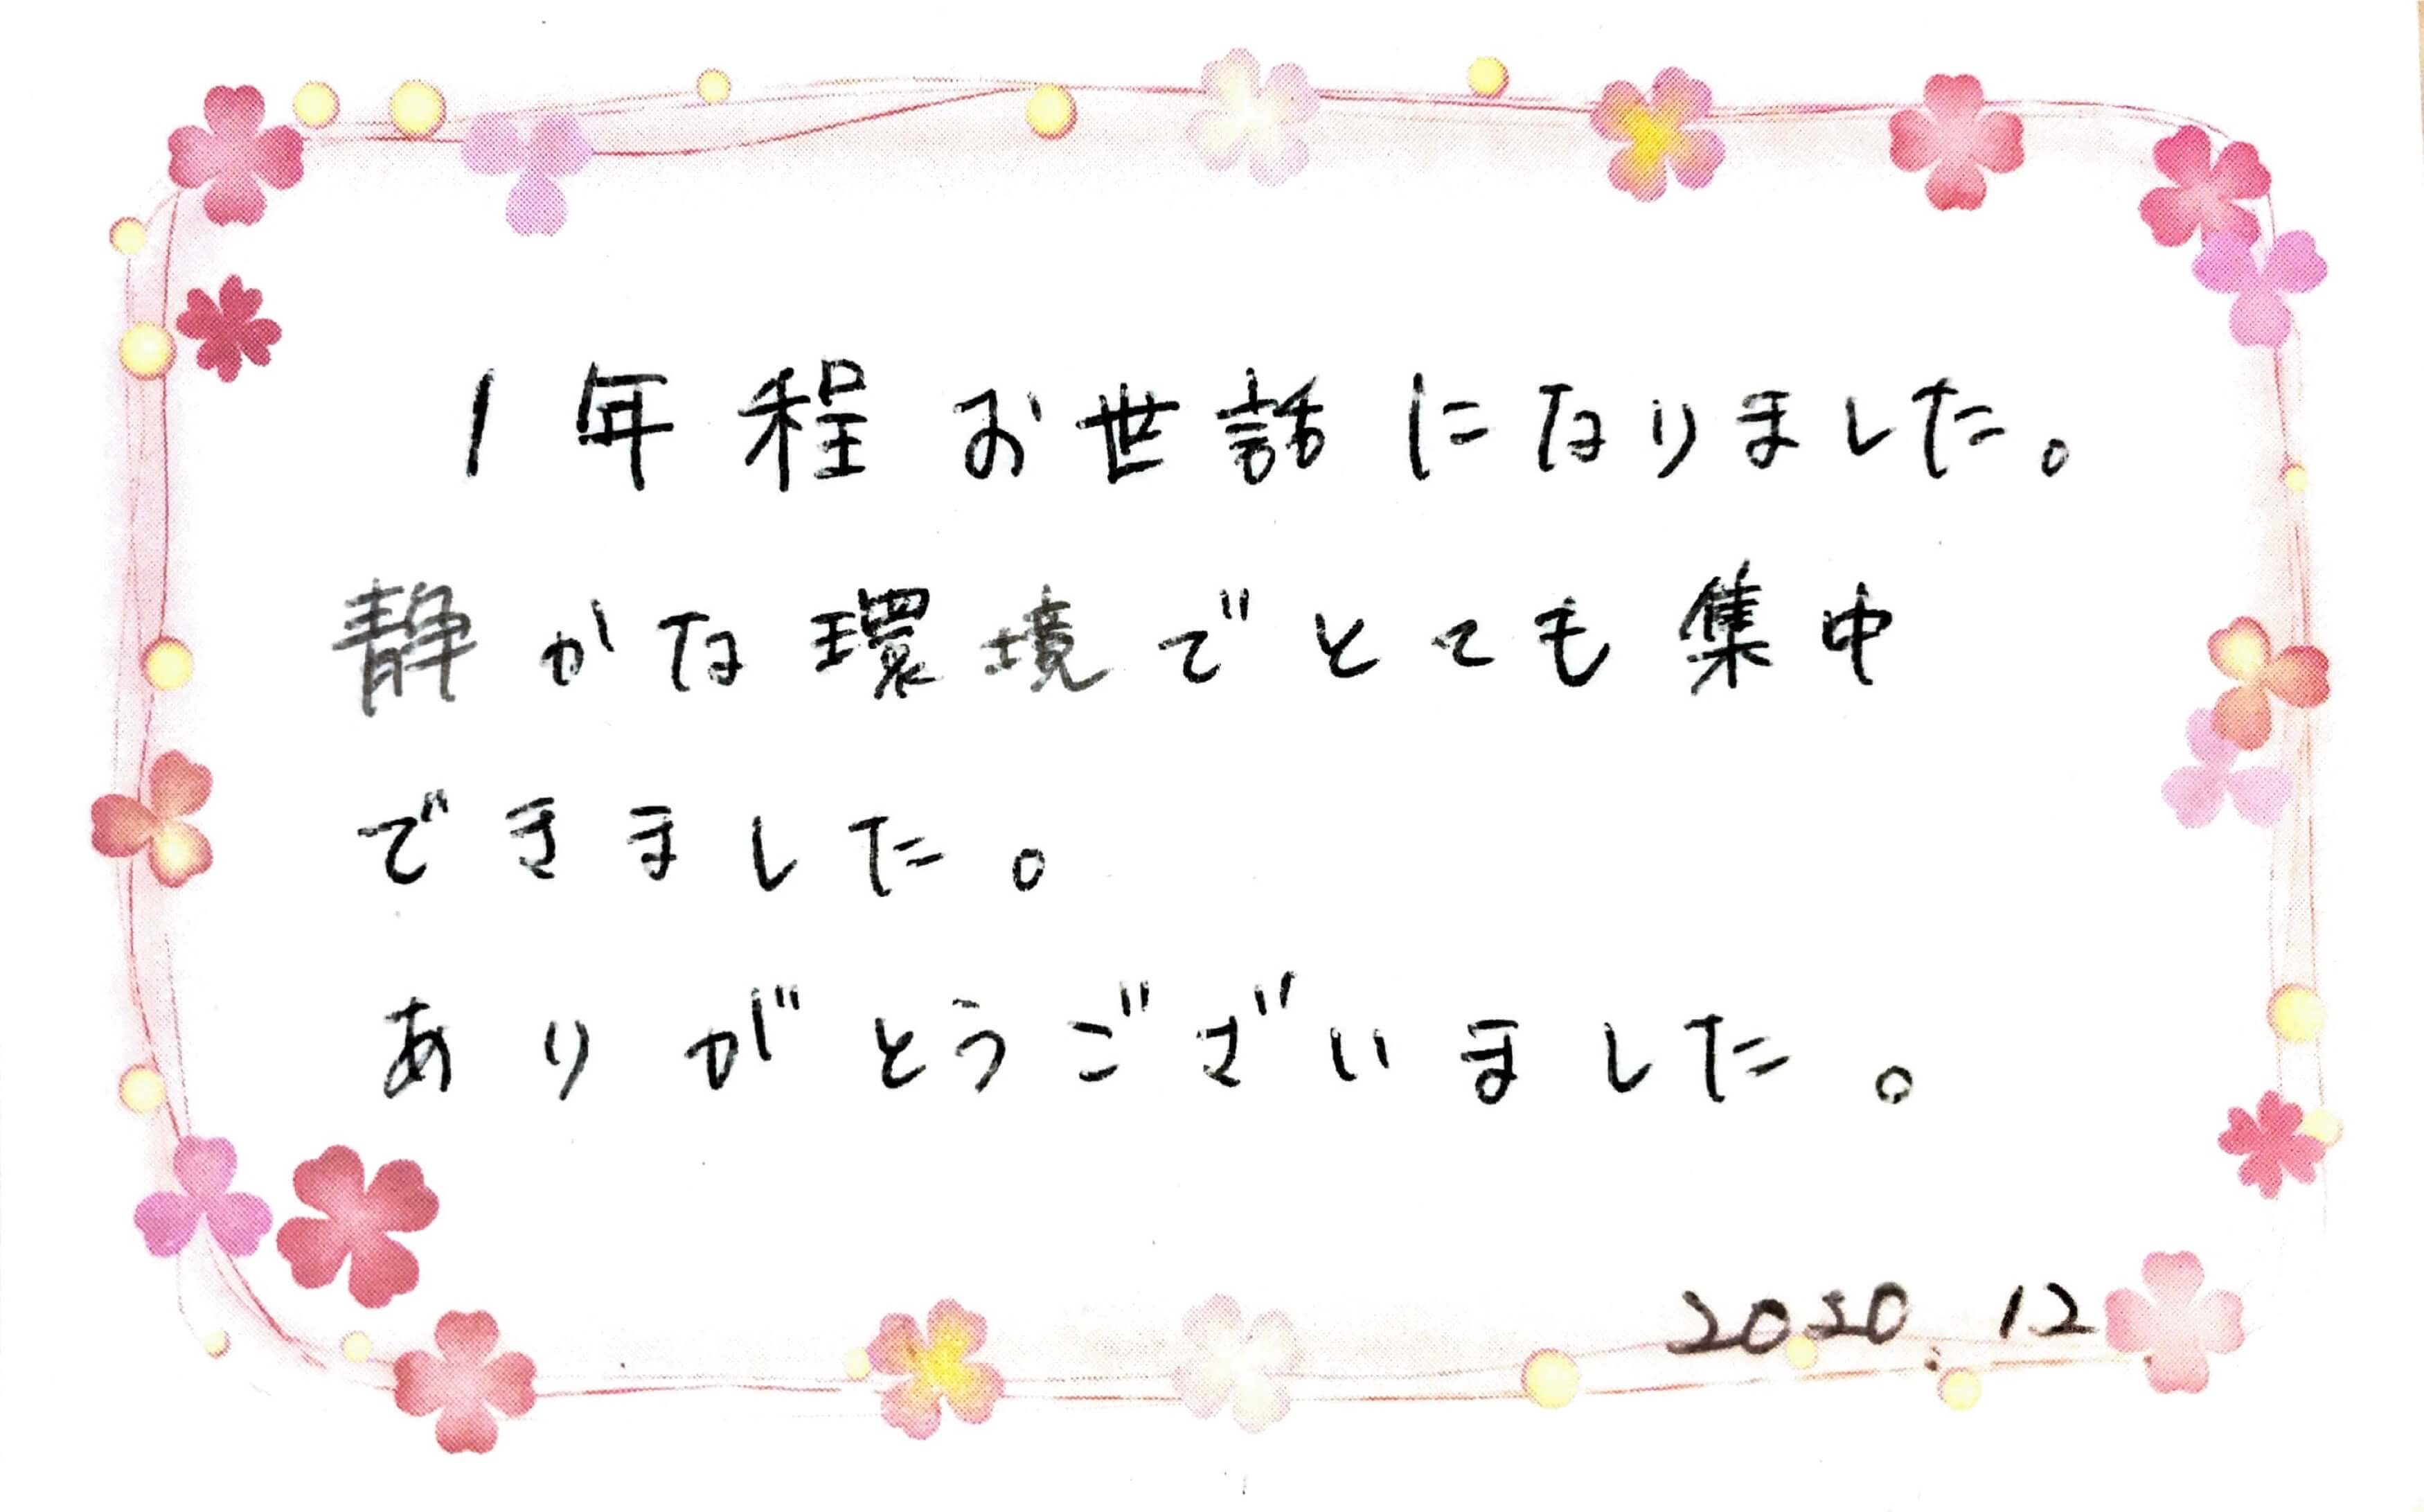 1年程お世話になりました。
静かな環境でとても集中
できました。
ありがとうございました。
2020.12